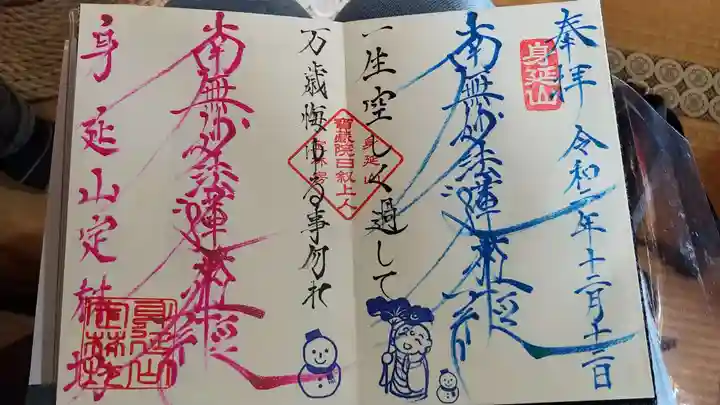 奉拝 令和二年十二月十三日
身延山
南無妙法蓮華経
一生空しく過して
万歳悔ゆる事勿れ
身延山
宝蔵院日叙上人
定林坊
南無妙法蓮華経
身延山定林坊
身延山
定林坊